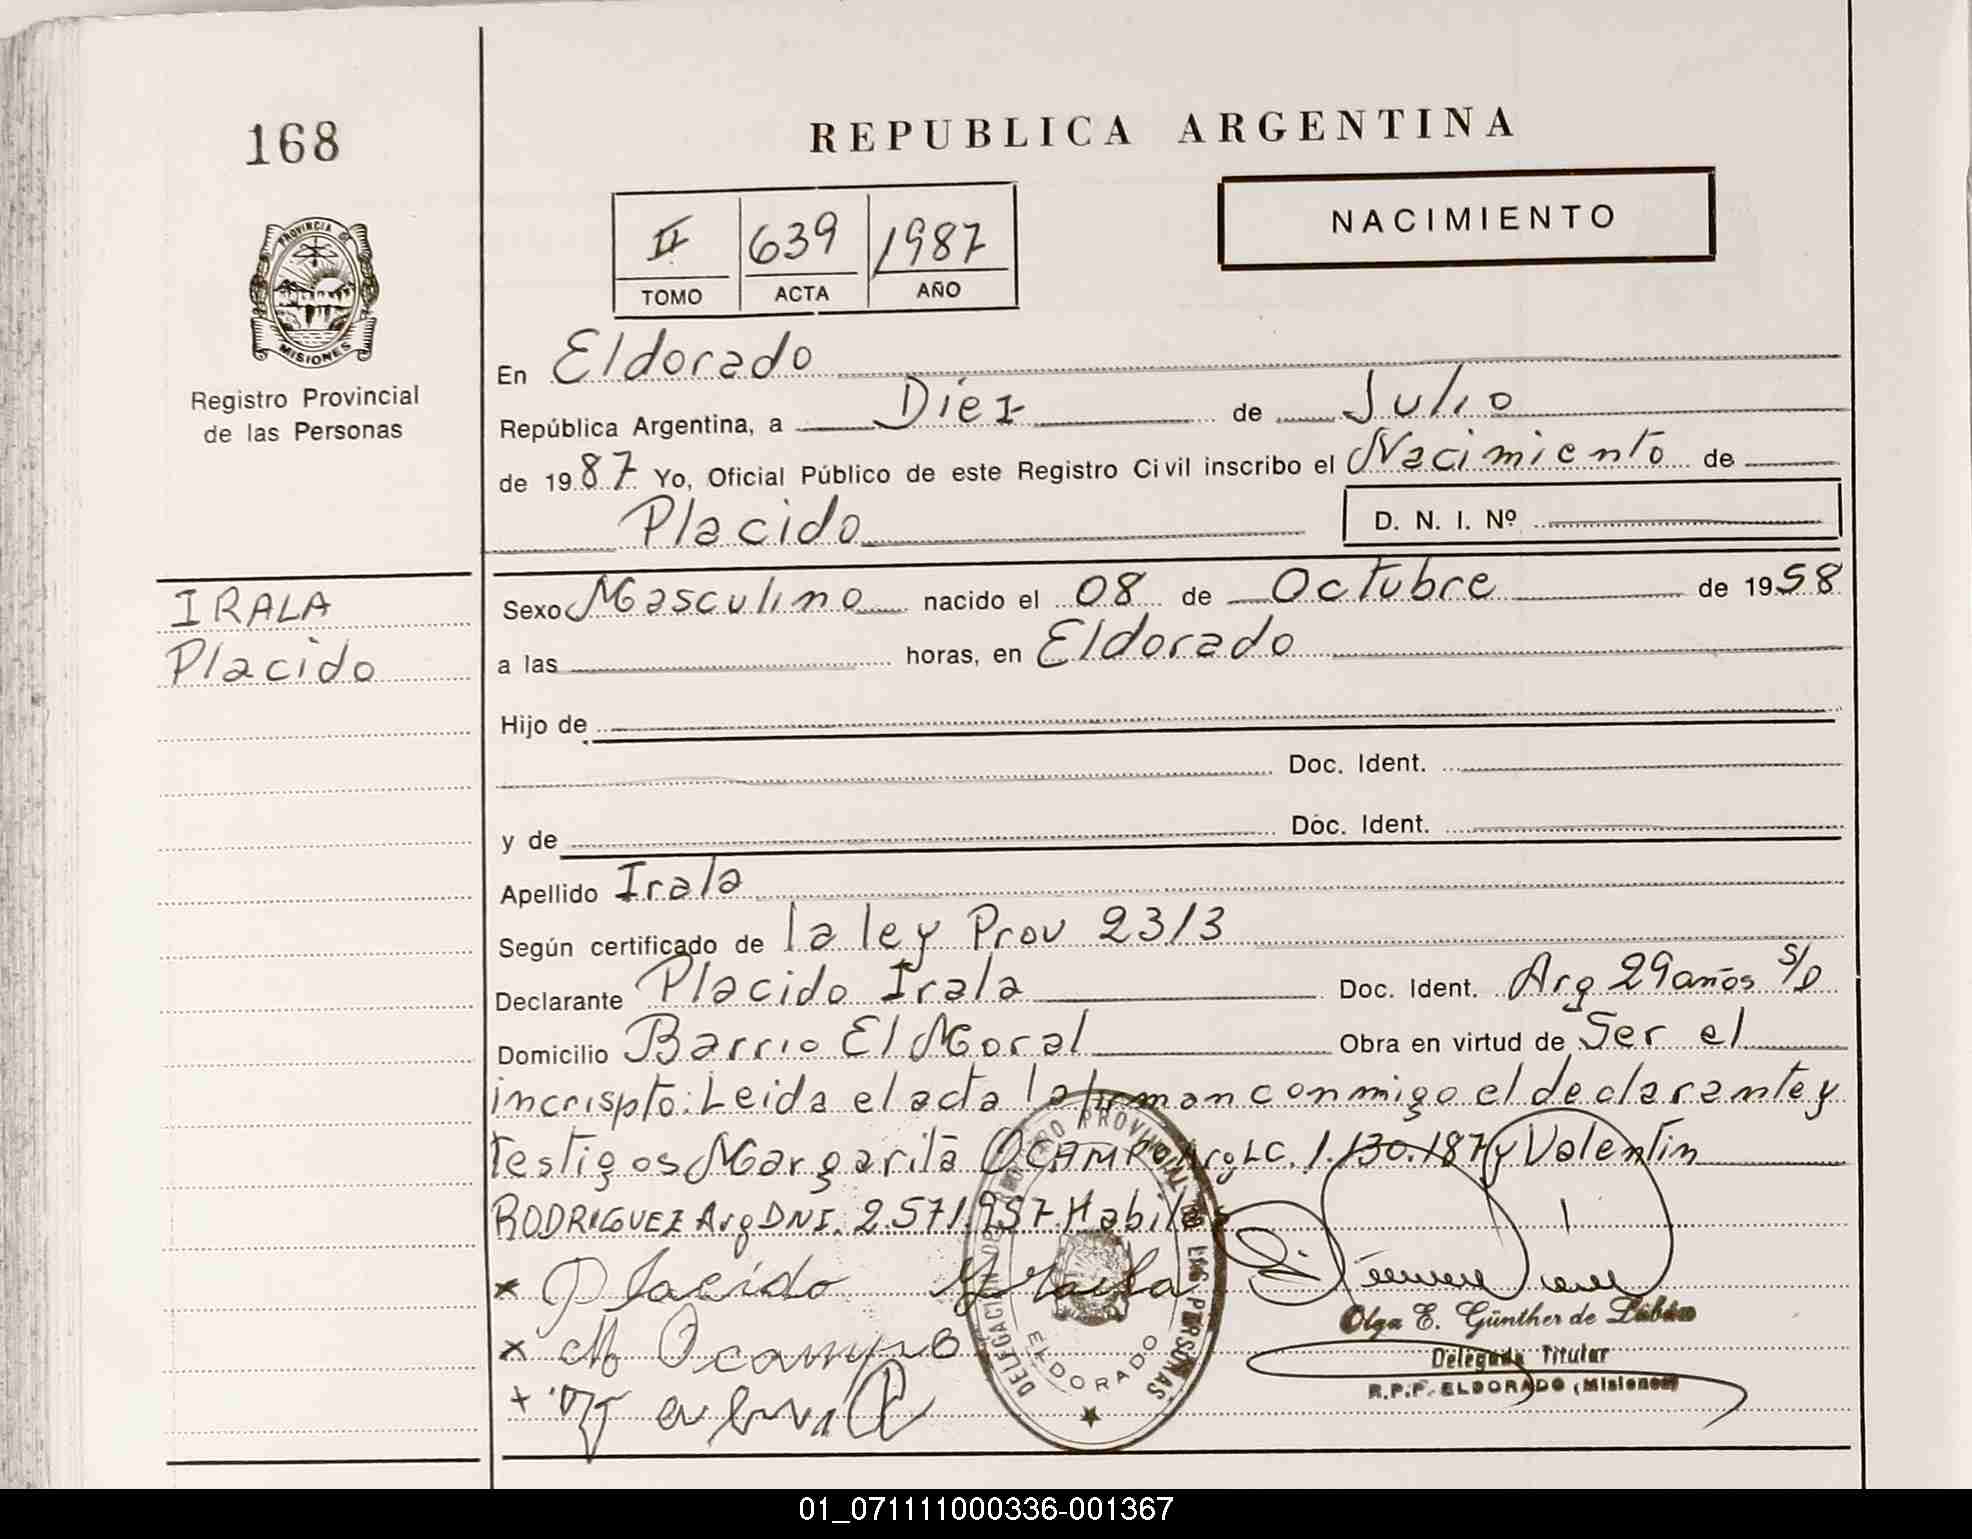 168
REPUBLICA ARGENTINA
NACIMIENTO
II 639 1987
TOMO ACTA AÑO
PROVINCIA DE
MISIONES
Registro Provincial
de las Personas
En Eldorado
República Argentina, a Diez de Julio
de 1987 Yo, Oficial Público de este Registro Civil inscribo el Nacimiento de
Placido D. N. I. Nº
IRALA
Placido
Sexo Masculino nacido el 08 de Octubre de 1958
a las horas, en Eldorado
Hijo de
Doc. Ident.
y de Doc. Ident.
Apellido Irala
Según certificado de la ley Prov 23/3
Declarante Placido Irala Doc. Ident. Arg 29 años S/D
Domicilio Barrio El Moral Obra en virtud de Ser el
incrispto: Leida el acta la firman conmigo el declarante y
testigos Margarita OCAMPO Arg LC. 1.130.187 y Valentin
RODRIGUEZ Arg DNI. 2.571.957 Habiles
x Placido Yrala
x M Ocampo
DELEGACION REGISTRO PROVINCIAL DE LAS PERSONAS
ELDORADO
Olga E. Günther de
Delegada Titular
R.P.P. ELDORADO (Misiones)
01_071111000336-001367